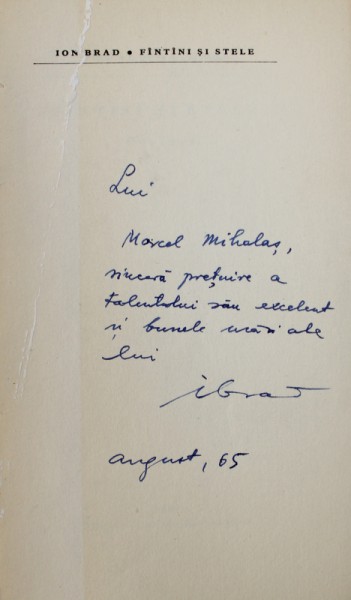 ION BRAD • FÎNTÎNI ȘI STELE
Lui
Marcel Mihalaș,
sinceră prețuire a
talentului său excelent
și bunele urări ale
lui
ibrad
august, 65